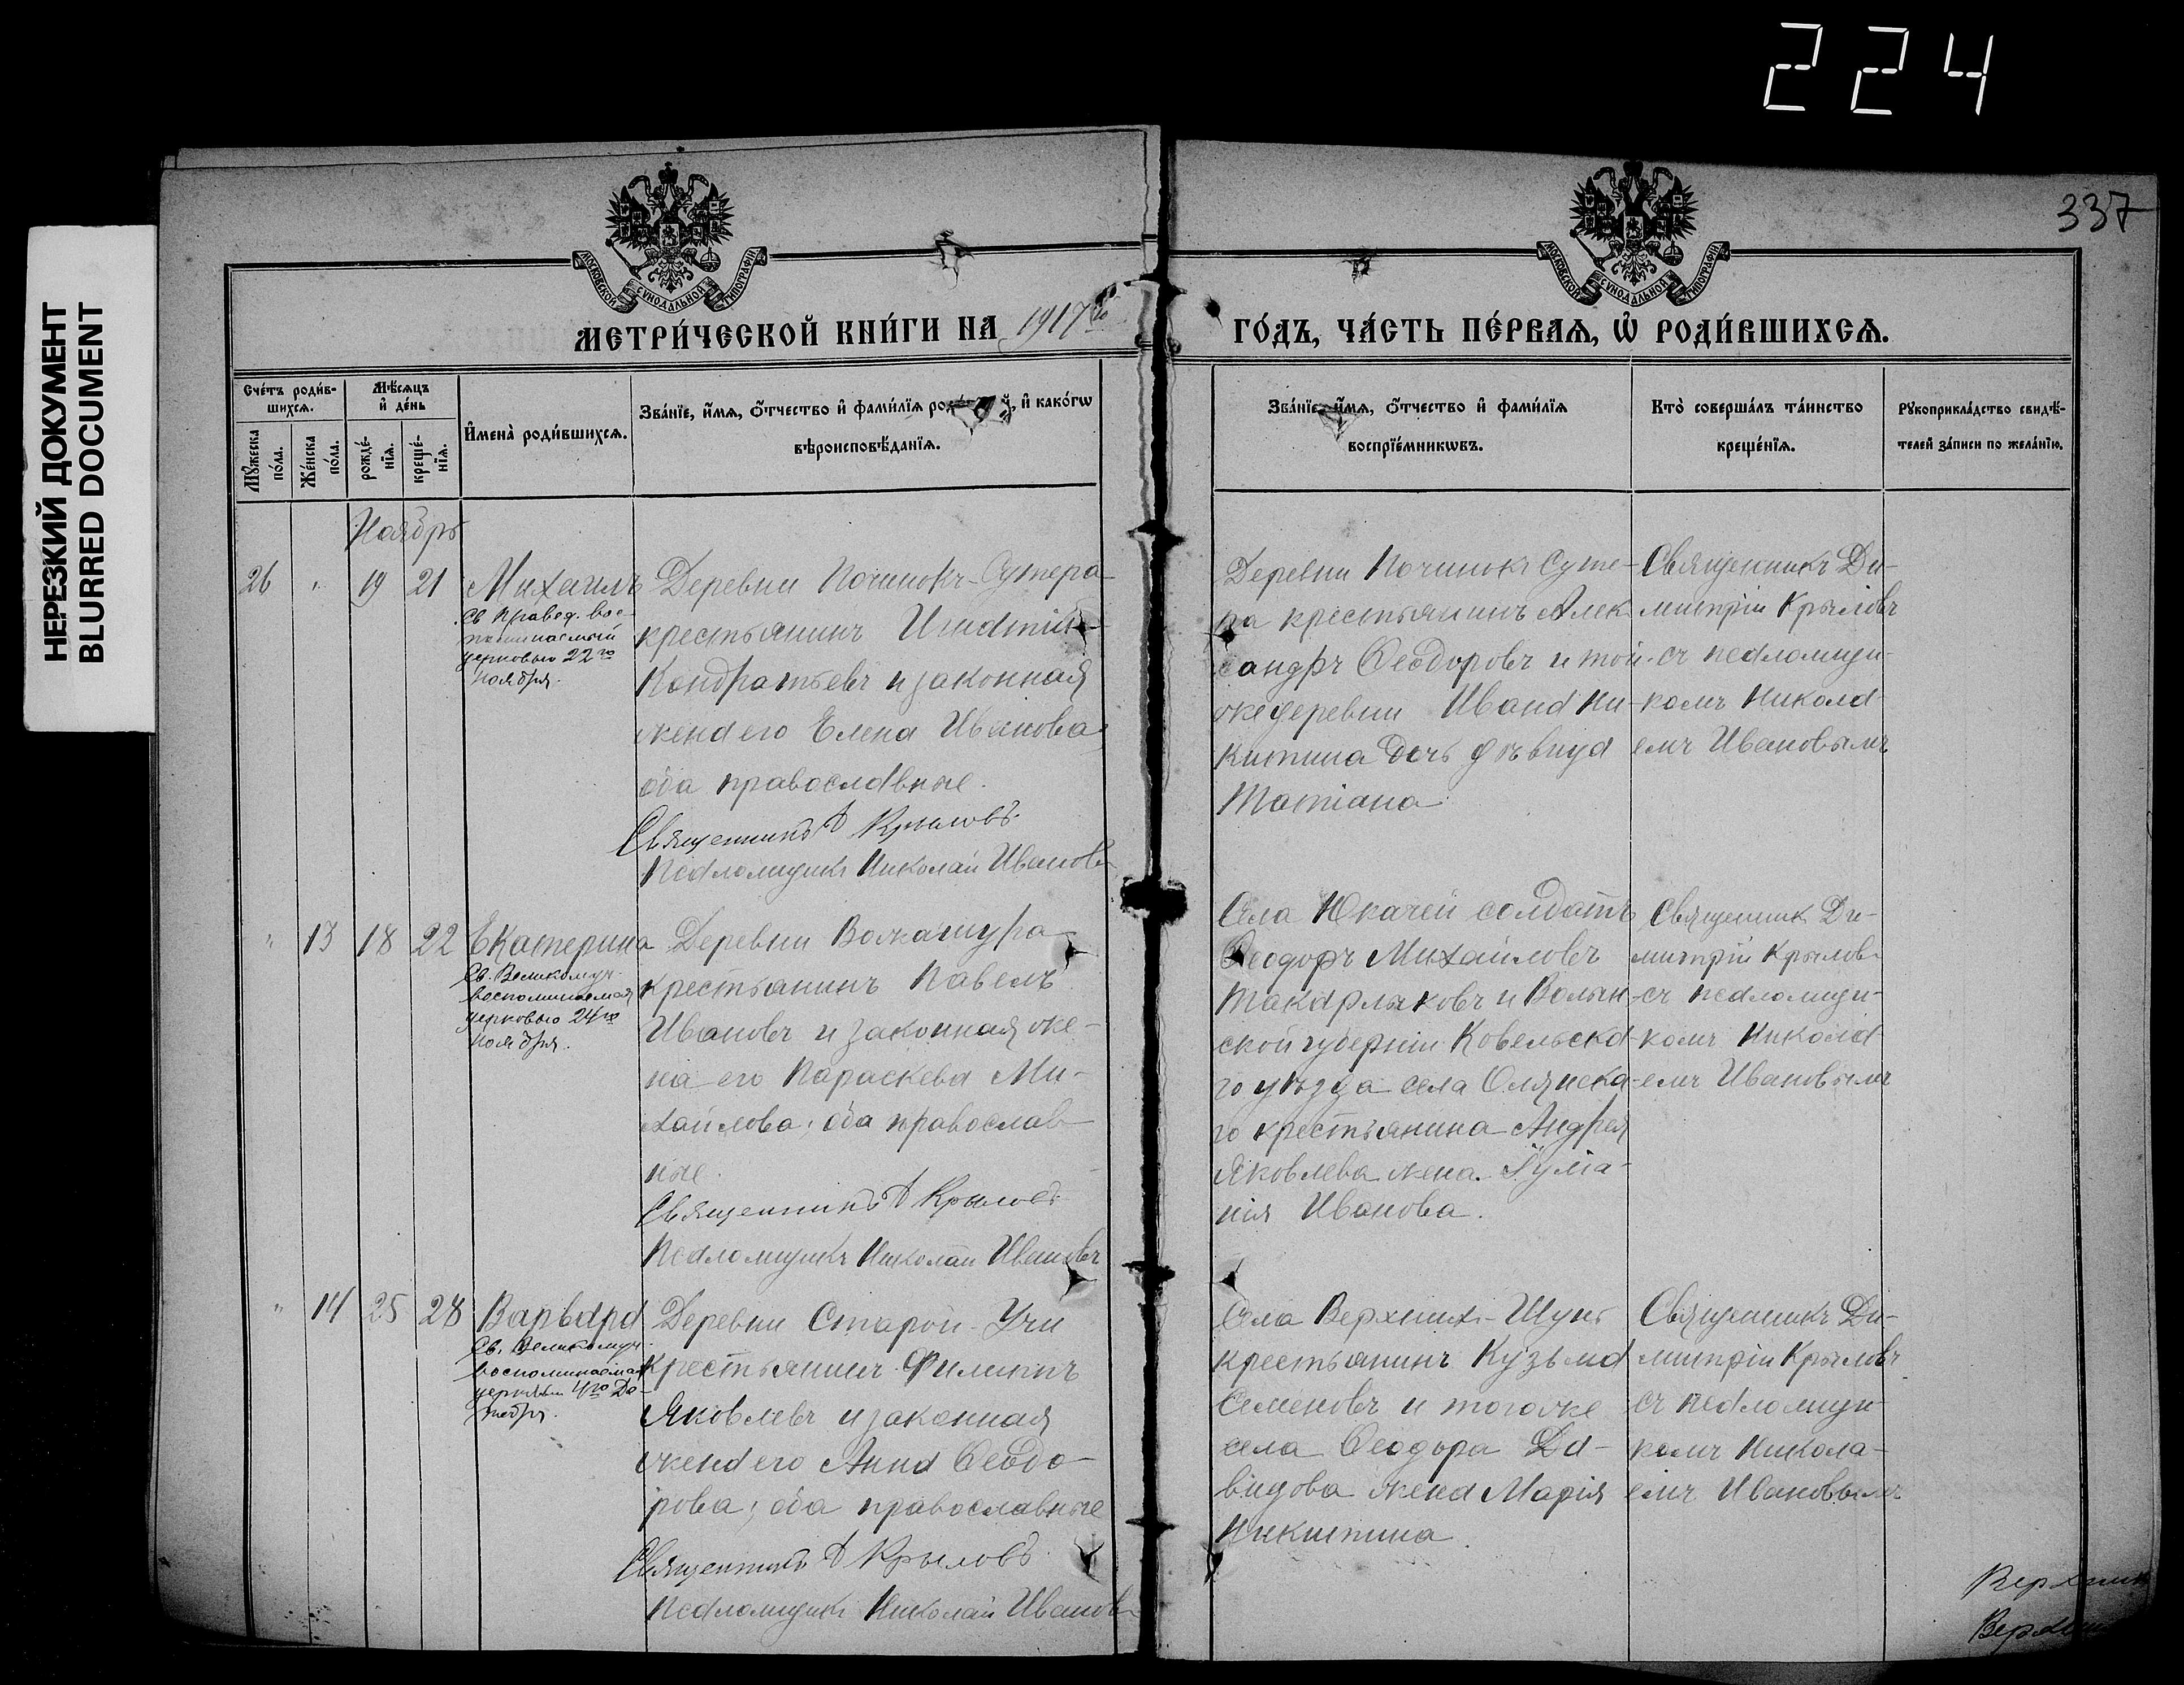 224
НЕРЕЗКИЙ ДОКУМЕНТ
BLURRED DOCUMENT
337
МОСКОВСКОЙ СѴНОДАЛЬНОЙ ТИПОГРАФІИ
МОСКОВСКОЙ СѴНОДАЛЬНОЙ ТИПОГРАФІИ
МЕТРИ́ЧЕСКОЙ КНИ́ГИ НА 1917го
ГО́ДЪ, ЧА́СТЬ ПЕ́РВАѦ, Ѽ РОДИ́ВШИХСѦ.
Сче́тъ роди́в-
шихсѧ.
Мѣ́сѧцъ
и҆ де́нь
Мꙋ́жеска
по́ла.
Же́нска
по́ла.
рожде́-
нїѧ.
креще́-
нїѧ.
И҆мена̀ роди́вшихсѧ.
Зва́нїе, и҆́мѧ, ѻ҆́тчество и҆ фами́лїѧ и҆ како́гѡ
вѣроисповѣ́данїѧ.
Зва́нїе, и҆́мѧ, ѻ҆́тчество и҆ фами́лїѧ
воспрїе́мникѡвъ.
Кто̀ соверша́лъ та́инство
креще́нїѧ.
Рꙋкоприкла́дство свидѣ́-
телей за́писи по жела́нїю.
Ноябрь
26 " 19 21 Михаилъ
Св. Правед. вос-
поминаемый
церковью 22го
ноября.
Деревни Починокъ-Сутера
крестьянинъ Игнатій
Кондратьевъ и законная
жена его Елена Иванова,
оба православные.
Священникъ Д Крыловъ.
Псаломщикъ Николай Ивановъ
Деревни Починокъ Суте-
ра крестьянинъ Алек
сандръ Ѳеодоровъ и той-
же деревни Ивана Ни-
китина дочь дѣвица
Татіана
Священникъ Ди-
митрій Крыловъ
съ псаломщи-
комъ Никола-
емъ Ивановымъ
" 13 18 22 Екатерина
Св. Великомуч.
воспоминаемая
церковью 24го
ноября.
Деревни Волкашура
крестьянинъ Павелъ
Ивановъ и законная же-
на его Параскева Ми-
хайлова; оба православ-
ные.
Священникъ Д Крыловъ
Псаломщикъ Николай Ивановъ
Села Юкачей солдатъ
Ѳеодоръ Михайловъ
Макарлыковъ и Волын-
ской губерніи Ковельска-
го уѣзда села
го крестьянина Андрея
Яковлева жена Іулiа-
нія Иванова.
Священник Ди-
митрій Крыловъ
съ псаломщи-
комъ Никола-
емъ Ивановымъ
" 14 25 28 Варвара
Св. Великомуч.
воспоминаемая
церковью 4го Де-
кабря.
Деревни Старой-Учи
крестьянинъ Филиппъ
Яковлевъ и законная
жена его Анна Ѳеодо-
рова; оба православные
Священникъ Д Крыловъ
Псаломщикъ Николай Ивановъ
Села Верхнихъ-Шунъ
крестьянинъ Кузьма
Семеновъ и того же
села Ѳеодора Да-
видова жена Марія
Никитина.
Священникъ Ди-
митрій Крыловъ
съ псаломщи-
комъ Никола-
емъ Ивановымъ